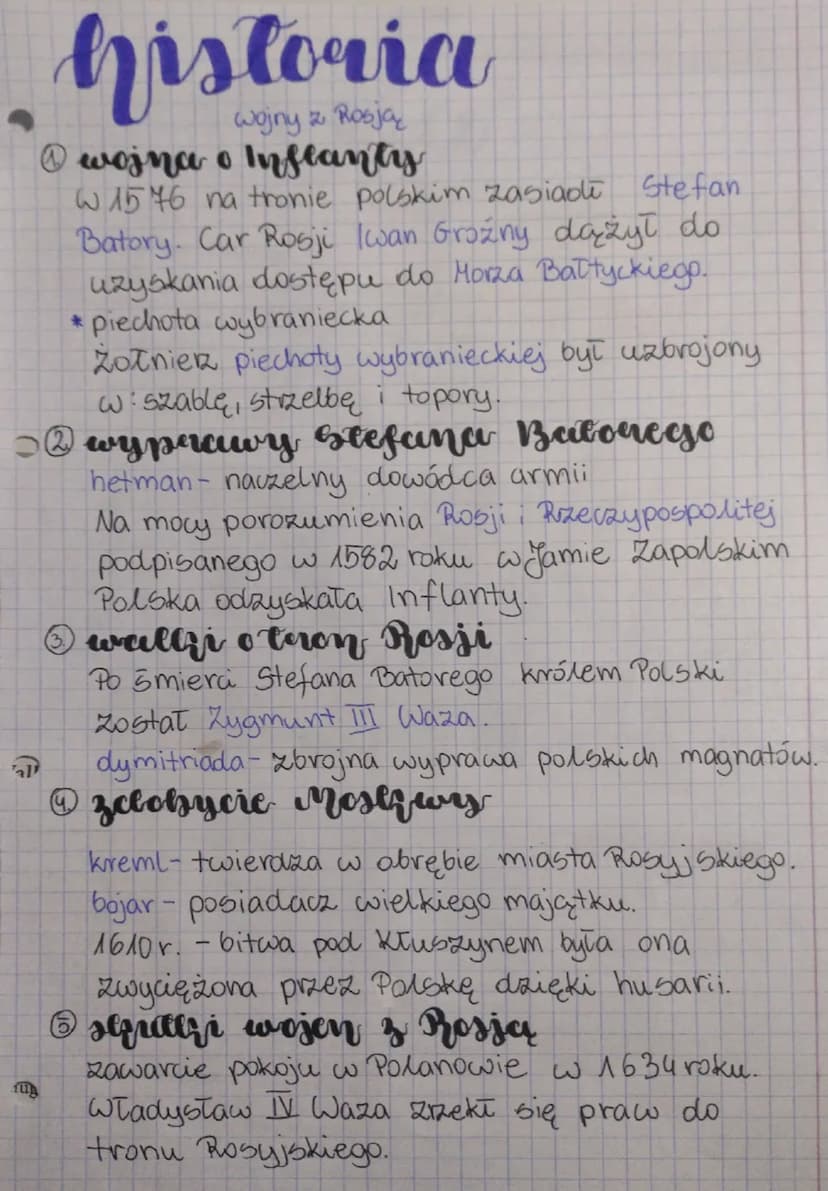 historia
wojny z Rosją
① wojna o Inflanty
W 1576 na tronie polskim zasiadł Stefan
Batory. Car Rosji Iwan Groźny dążył do
uzyskania dostępu do Morza Bałtyckiego.
* piechota wybraniecka
żołnierz piechoty wybranieckiej był uzbrojony
w: szablę, strzelbę i topory.
② wyprawy Stefana Batorego
hetman - naczelny dowódca armii
Na mocy porozumienia Rosji i Rzeczypospolitej
podpisanego w 1582 roku w Jamie Zapolskim
Polska odzyskała Inflanty.
③ walki o tron Rosji
Po śmierci Stefana Batorego królem Polski
został Zygmunt III Waza.
dymitriada - zbrojna wyprawa polskich magnatów.
④ zdobycie Moskwy
kreml - twierdza w obrębie miasta Rosyjskiego.
bojar - posiadacz wielkiego majątku.
1610 r. - bitwa pod Kłuszynem była ona
zwyciężona przez Polskę dzięki husarii.
⑤ skutki wojen z Rosją
zawarcie pokoju w Polanowie w 1634 roku.
Władysław IV Waza zrzekł się praw do
tronu Rosyjskiego.